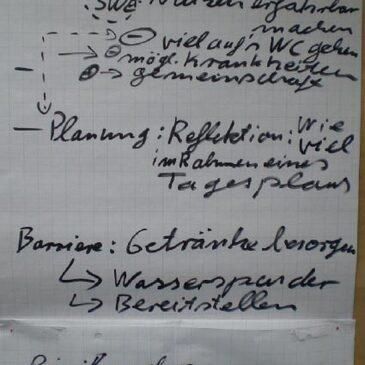 SWE: Nutzen erfahrbar
machen
⊖ viel auf's WC gehen
→ ⊖ mögl. Krankheiten
⊕ → gemeinschaft
– Planung: Reflektion: wie
viel
im Rahmen eines
Tagesplans
Barriere: Getränke besorgen
↳ Wasserspender
↳ Bereitstellen